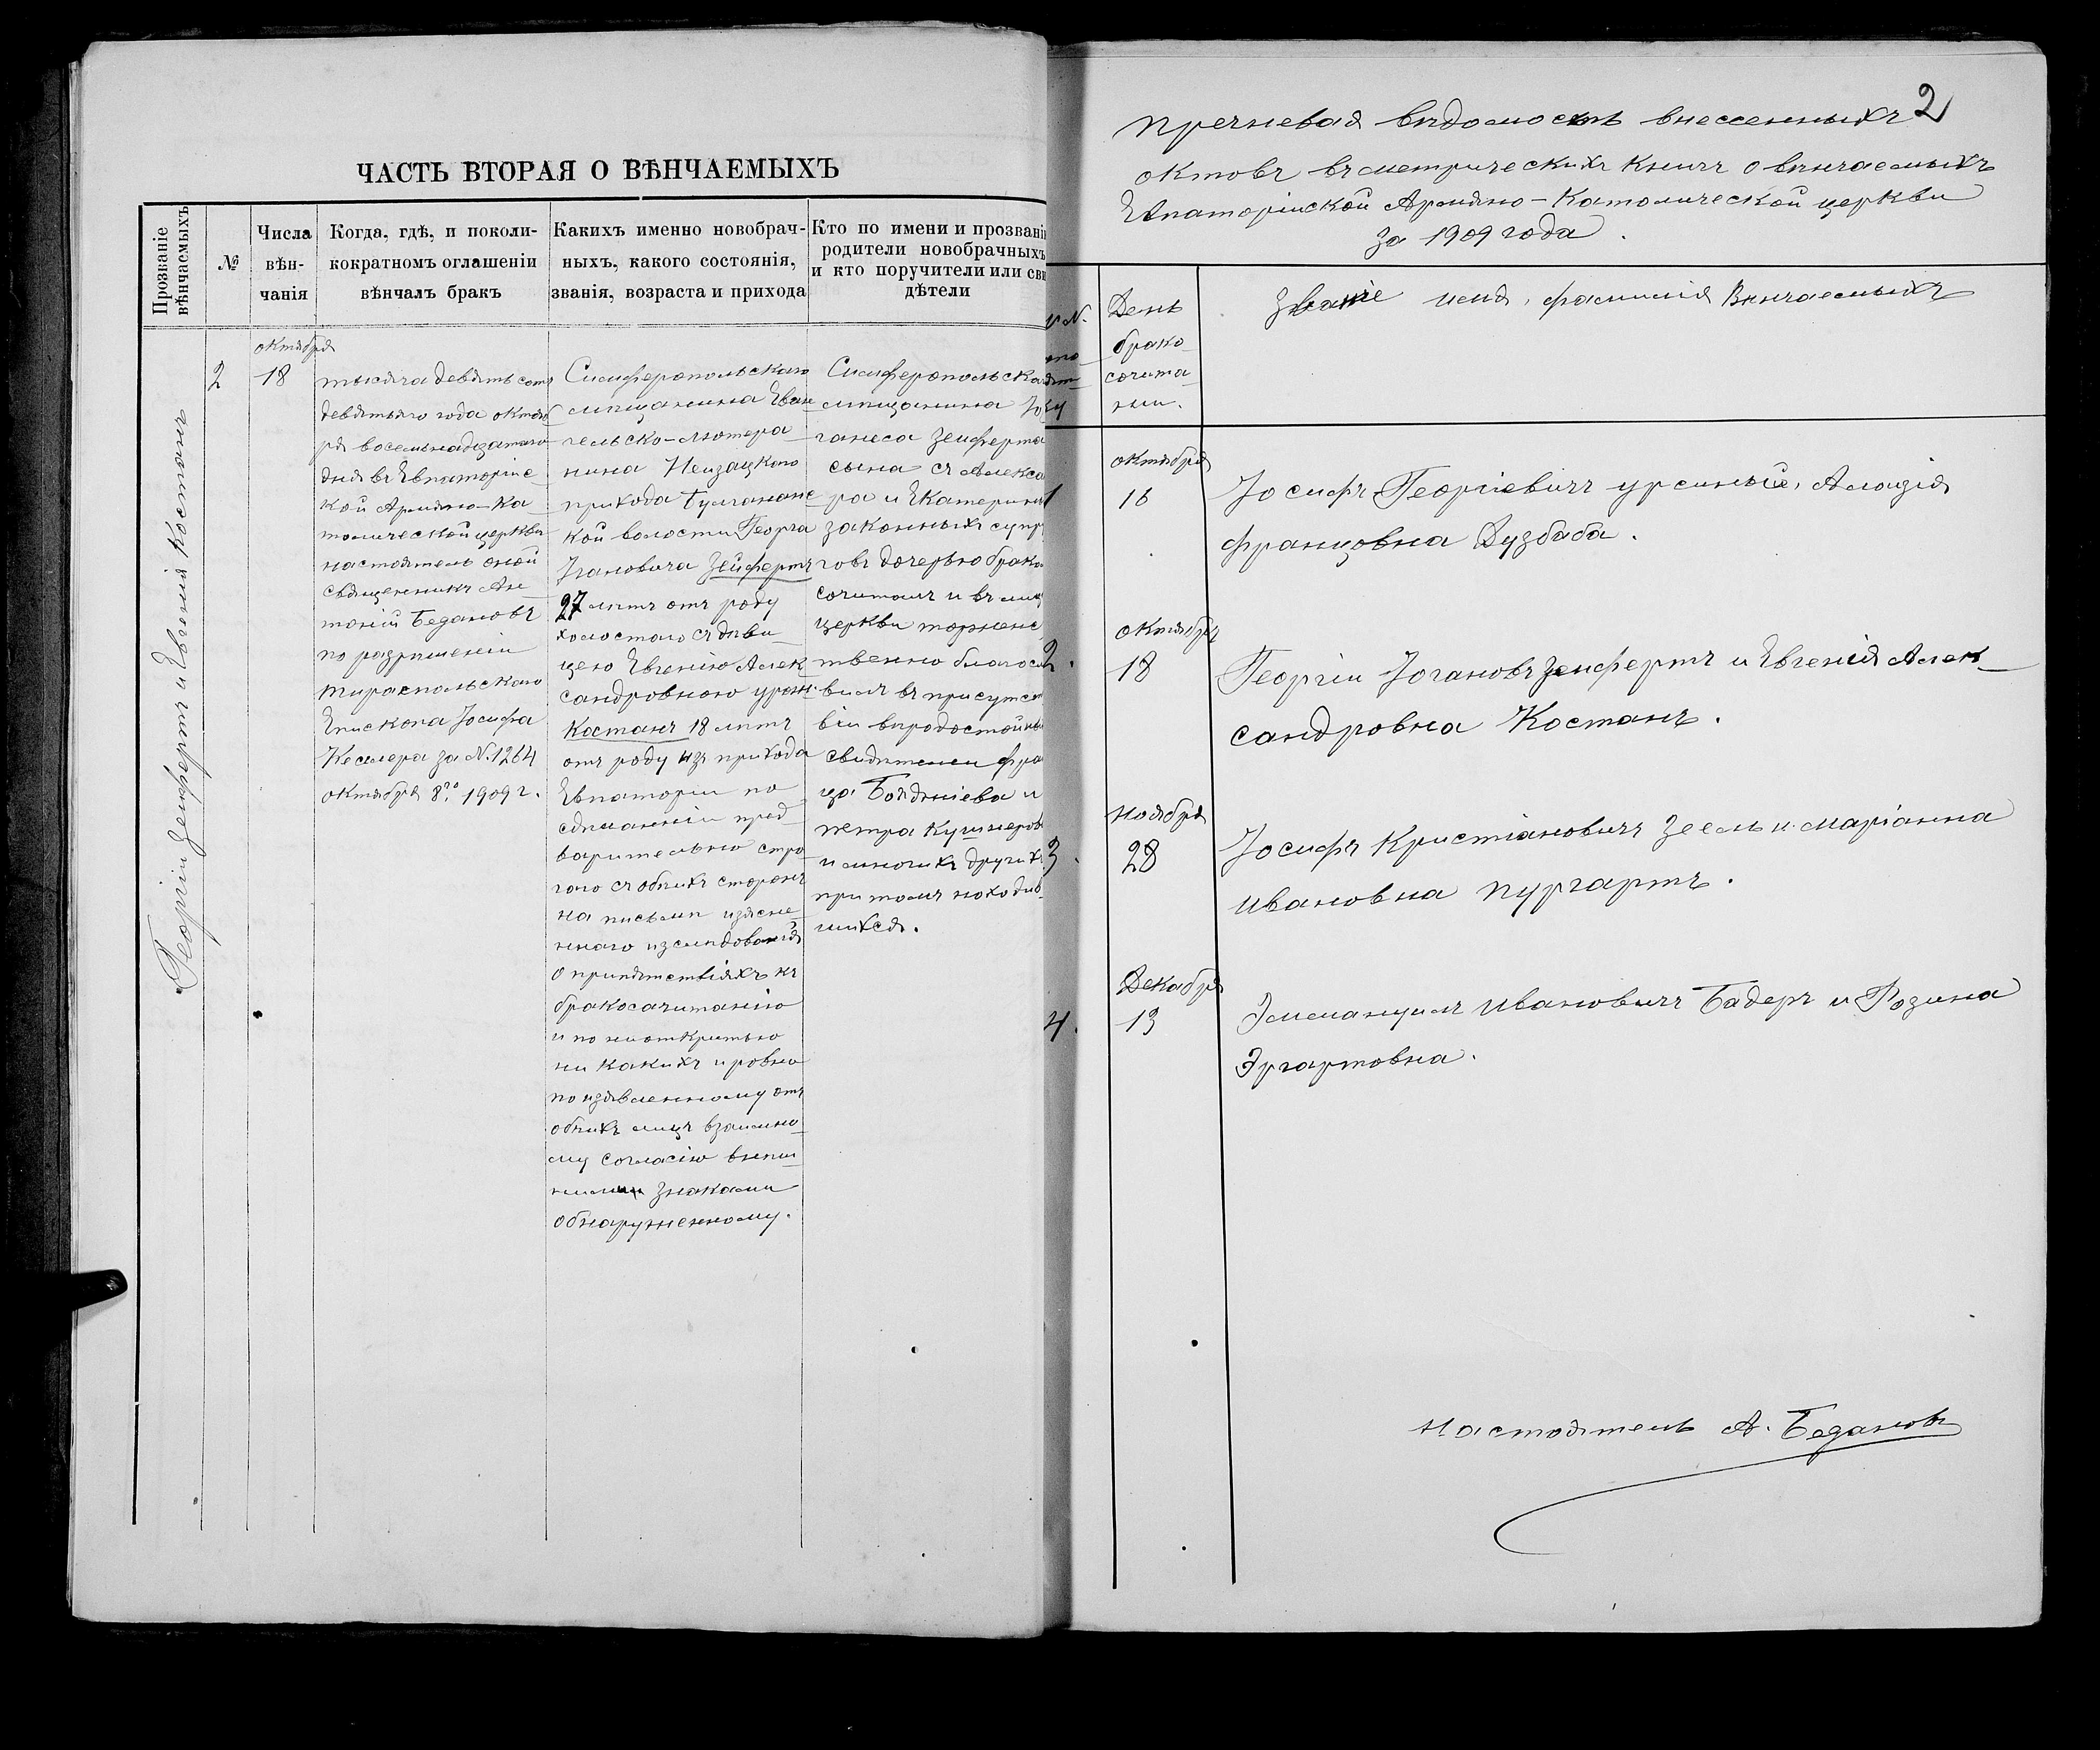 ЧАСТЬ ВТОРАЯ О ВѢНЧАЕМЫХЪ
Прозваніе
вѣнчаемыхъ
№
Числа
вѣн-
чанія
Когда, гдѣ, и поколи-
кократномъ оглашеніи
вѣнчалъ бракъ
Какихъ именно новобрач-
ныхъ, какого состоянія,
званія, возраста и прихода
Кто по имени и прозвані
родители новобрачныхъ
и кто поручители или сви
дѣтели
Георгіи Зеифертъ и Евгенія Костанъ
2
октября
18
тысяча девять сотъ
девятаго года октяб
ря восемьнадцатаго
дня въ Евпаторіис
кой Армяно-Ка
толической церкви
настоятель оной
священникъ Ан
тоній Бедановъ
по разрѣшеніи
Тираспольскаго
Епископа Іосифа
Кеслера за №1264
октября 8го 1909 г.
Симферопольскаго
мѣщанина Еван
гельско-лютера
нина Неизацкаго
прихода Булганакс
кой волости Георга
Іогановича Зейфертъ
27 лѣтъ отъ роду
холостого съ дѣви
цею Евгеніею Алек
сандровною урож.
Костанъ 18 лѣтъ
отъ роду изъ прихода
Евпаторіи по
сдѣланніи пред
варительно стро
гаго съ обѣихъ сторонъ
на письмѣ изясне
ннаго изслѣдованія
о припятствіяхъ къ
бракосачитанію
и по неоткрытью
ни какихъ и ровно
по изявленному отъ
обѣихъ лицъ взаимно
му согласію внѣш
ними знаками
обнаруженному.
Симферопольска
мѣщанина Іо
ганеса Зеиферта
сына съ Алекса
ра и Екатерины
законныхъ супр
говъ дочерью брако
сочиталъ и въ лиц
церкви торженс
твенно благосл
вилъ въ присутст
віи вѣродостойны
свидѣтелеи Фра
ца Бояджіева и
Петра Кушнеров
и многихъ другихъ
при томъ находив
шихся.
2
Пречневая вѣдомость внесенныхъ
октовъ въ метрическихъ книгъ о вѣнчаемыхъ
Евпаторіиской Армяно-Католической церкви
за 1909 года.
День
брако
сочита
ніи.
Званіе имя, фамилія Вѣнчаемыхъ
1
октября
16
Іосифъ Георгіевичъ Урсиный, Алоизія
Францовна Дузбаба.
2.
октября
18
Георгіи Іогановъ Зеифертъ и Евгенія Алек
сандровна Костанъ.
3.
Ноября
28
Іосифъ Кристіановичъ Зеель и Маріанна
Ивановна Пургартъ.
4.
Декабря
13
Эммануилъ Ивановичъ Бадеръ и Розина
Эргартовна.
Настоятель А. Бедановъ